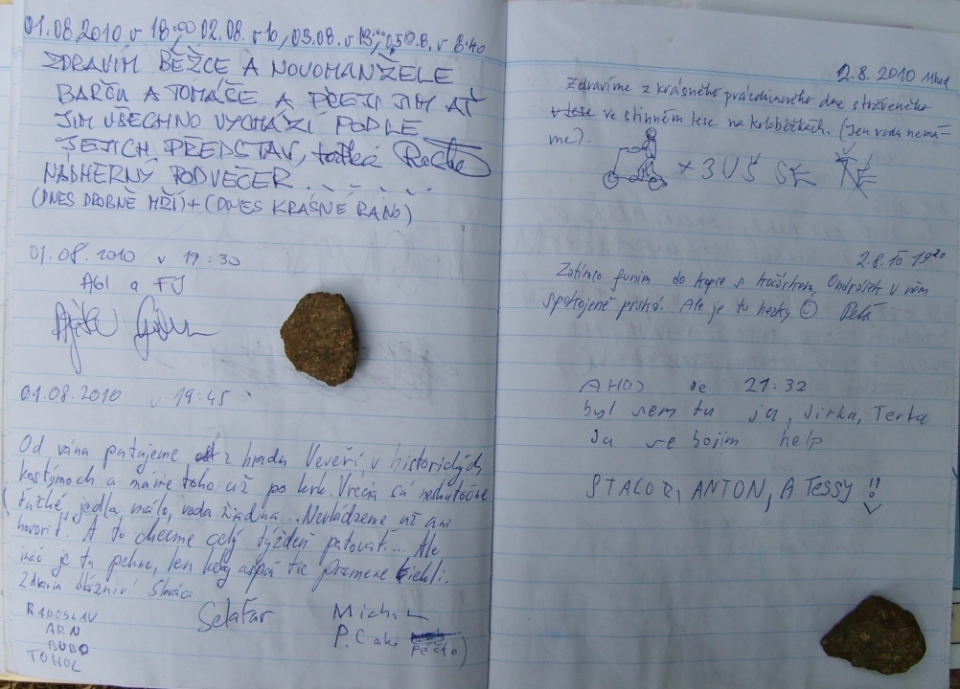 01.08.2010 v 18:00 02.08. v 10, 03.08. v 13:00, 05.08. v 8:40
ZDRAVÍM BĚŽCE A NOVOMANŽELE
BARČU A TOMÁŠE A PŘEJI JIM AŤ
JIM VŠECHNO VYCHÁZÍ PODLE
JEJICH PŘEDSTAV, taťka
NÁDHERNÝ PODVEČER . . . . . . .
(DNES DROBNĚ MŽÍ) + (DNES KRÁSNÉ RÁNO)
01.08.2010 v 19:30
a
01.08.2010 v 19:45
Od rána putujeme z hradu Veveří v historických
kostýmoch a máme toho už po krk. Vrecia sú neskutočne
ťažké, jedla málo, voda žiadna... Nevládzeme už ani
hovoriť. A to chceme celý týždeň putovať... Ale
ináč je tu pekne, len keby aspoň tie pramene tiekli.
Zdravia blázniví Slováci
RADOSLAV
ARN
BUBO
Selafar
P. Cake
2.8.2010
Zdravíme z krásného prázdninového dne stráveného
ve stinném lese na koloběžkách. (Jen vodu nemá-
me).
+ 3
2.8.10 19:20
Zatímco funím do kopce s kočárkem, Ondrášek v něm
spokojeně prská. Ale je tu hezky ☺ Péťa
AHOJ je 21:32
byl sem tu ja, Jirka, Terka
Ja se bojim help
STALOR, ANTON, A TESSY !!